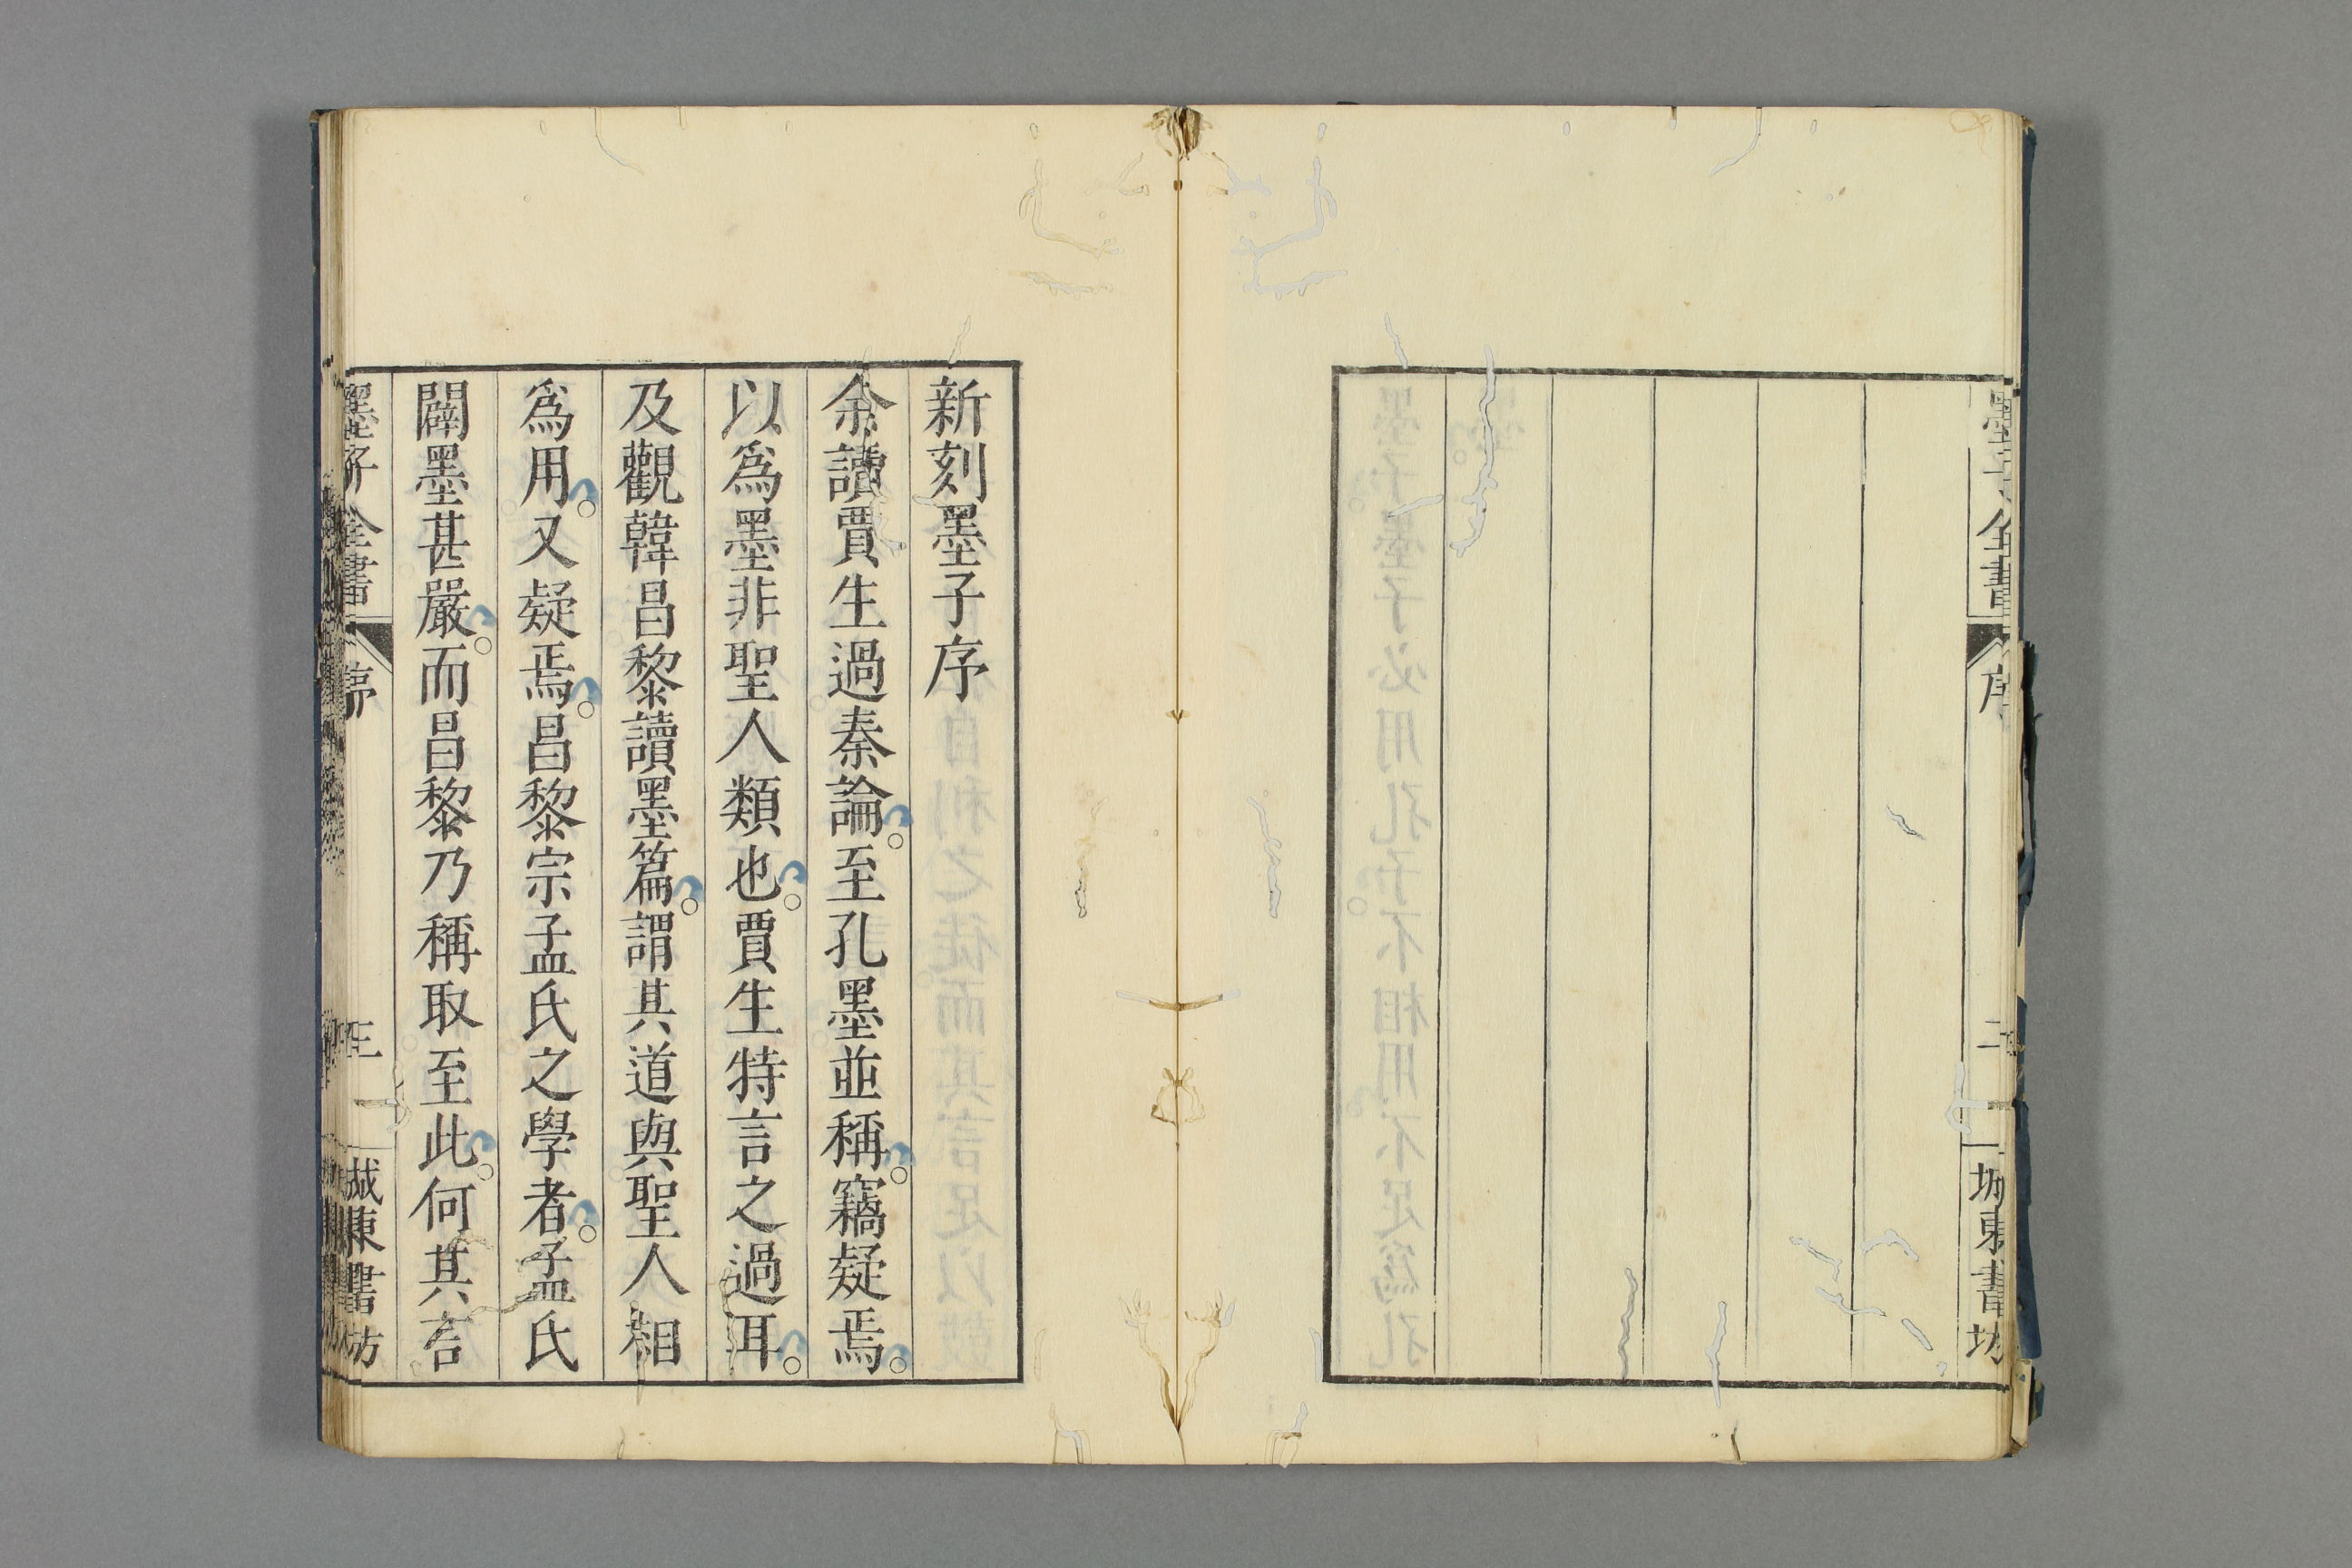 墨子全書
序
二
城東書坊
新刻墨子序
余讀賈生過秦論。至孔墨並稱。竊疑焉。
以爲墨非聖人類也。賈生特言之過耳。
及觀韓昌黎讀墨篇。謂其道與聖人相
爲用。又疑焉。昌黎宗孟氏之學者。孟氏
闢墨甚嚴。而昌黎乃稱取至此。何其言
墨子全書
序
三
城東書坊